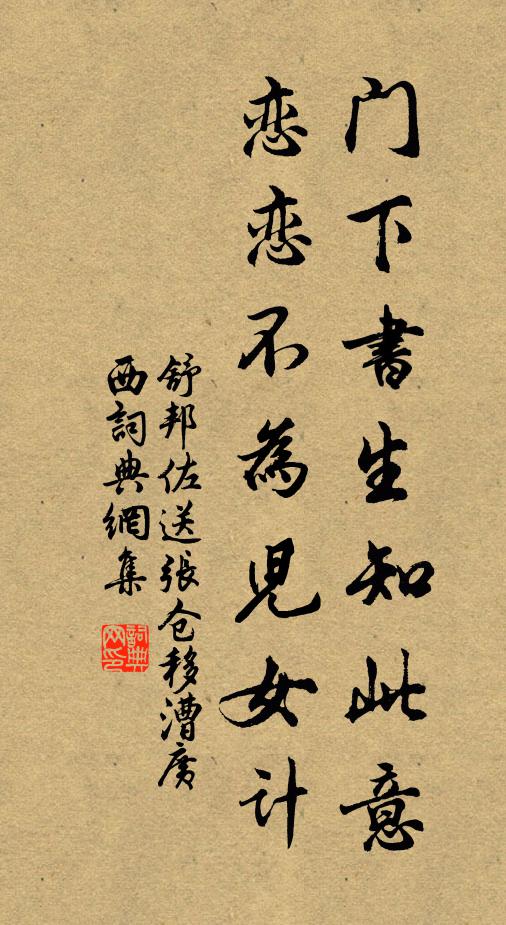 门下書生知此意
恋恋不為児女计
舒邦佐送張仓移漕廣
西詞典網集
詞典
网印